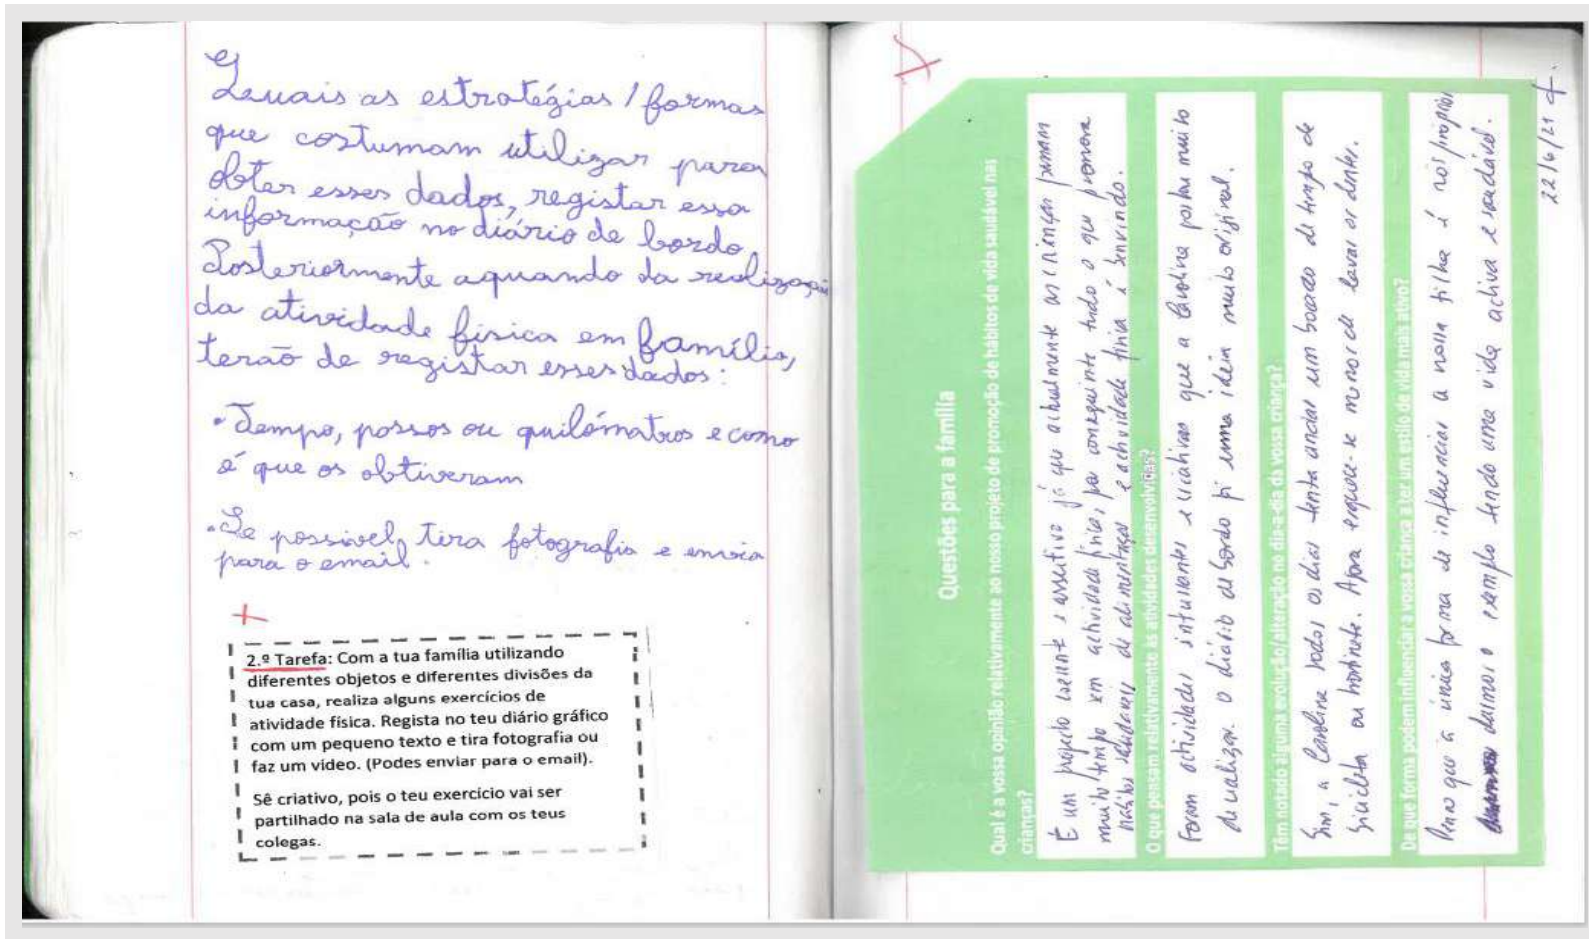 Quais as estratégias / formas
que costumam utilizar para
obter esses dados, registar essa
informação no diário de bordo.
Posteriormente aquando da realização
da atividade física em família,
terão de registar esses dados:
• Tempo, passos ou quilómetros e como
é que os obtiveram
• Se possível, tira fotografia e envia
para o email.
2.ª Tarefa: Com a tua família utilizando
diferentes objetos e diferentes divisões da
tua casa, realiza alguns exercícios de
atividade física. Regista no teu diário gráfico
com um pequeno texto e tira fotografia ou
faz um vídeo. (Podes enviar para o email).
Sê criativo, pois o teu exercício vai ser
partilhado na sala de aula com os teus
colegas.
Questões para a família
Qual é a vossa opinião relativamente ao nosso projeto de promoção de hábitos de vida saudável nas
crianças?
É um projeto e assertivo já que actualmente as crianças passam
muito tempo sem actividade física, por conseguinte tudo o que promova
hábitos saudáveis de alimentação e actividade física é benvindo.
O que pensam relativamente às atividades desenvolvidas?
Foram actividades interessantes e criativas que a Carolina gostou muito
de realizar. O diário de bordo foi uma ideia muito original.
Têm notado alguma evolução/alteração no dia-a-dia da vossa criança?
Sim, a Carolina todos os dias tenta andar um bocado de tempo de
bicicleta ou trotinete. Agora esquece-se menos de lavar os dentes.
De que forma podem influenciar a vossa criança a ter um estilo de vida mais ativo?
Penso que a única forma de influenciar a nossa filha é nós próprios
darmos o exemplo tendo uma vida activa e saudável.
22/6/21